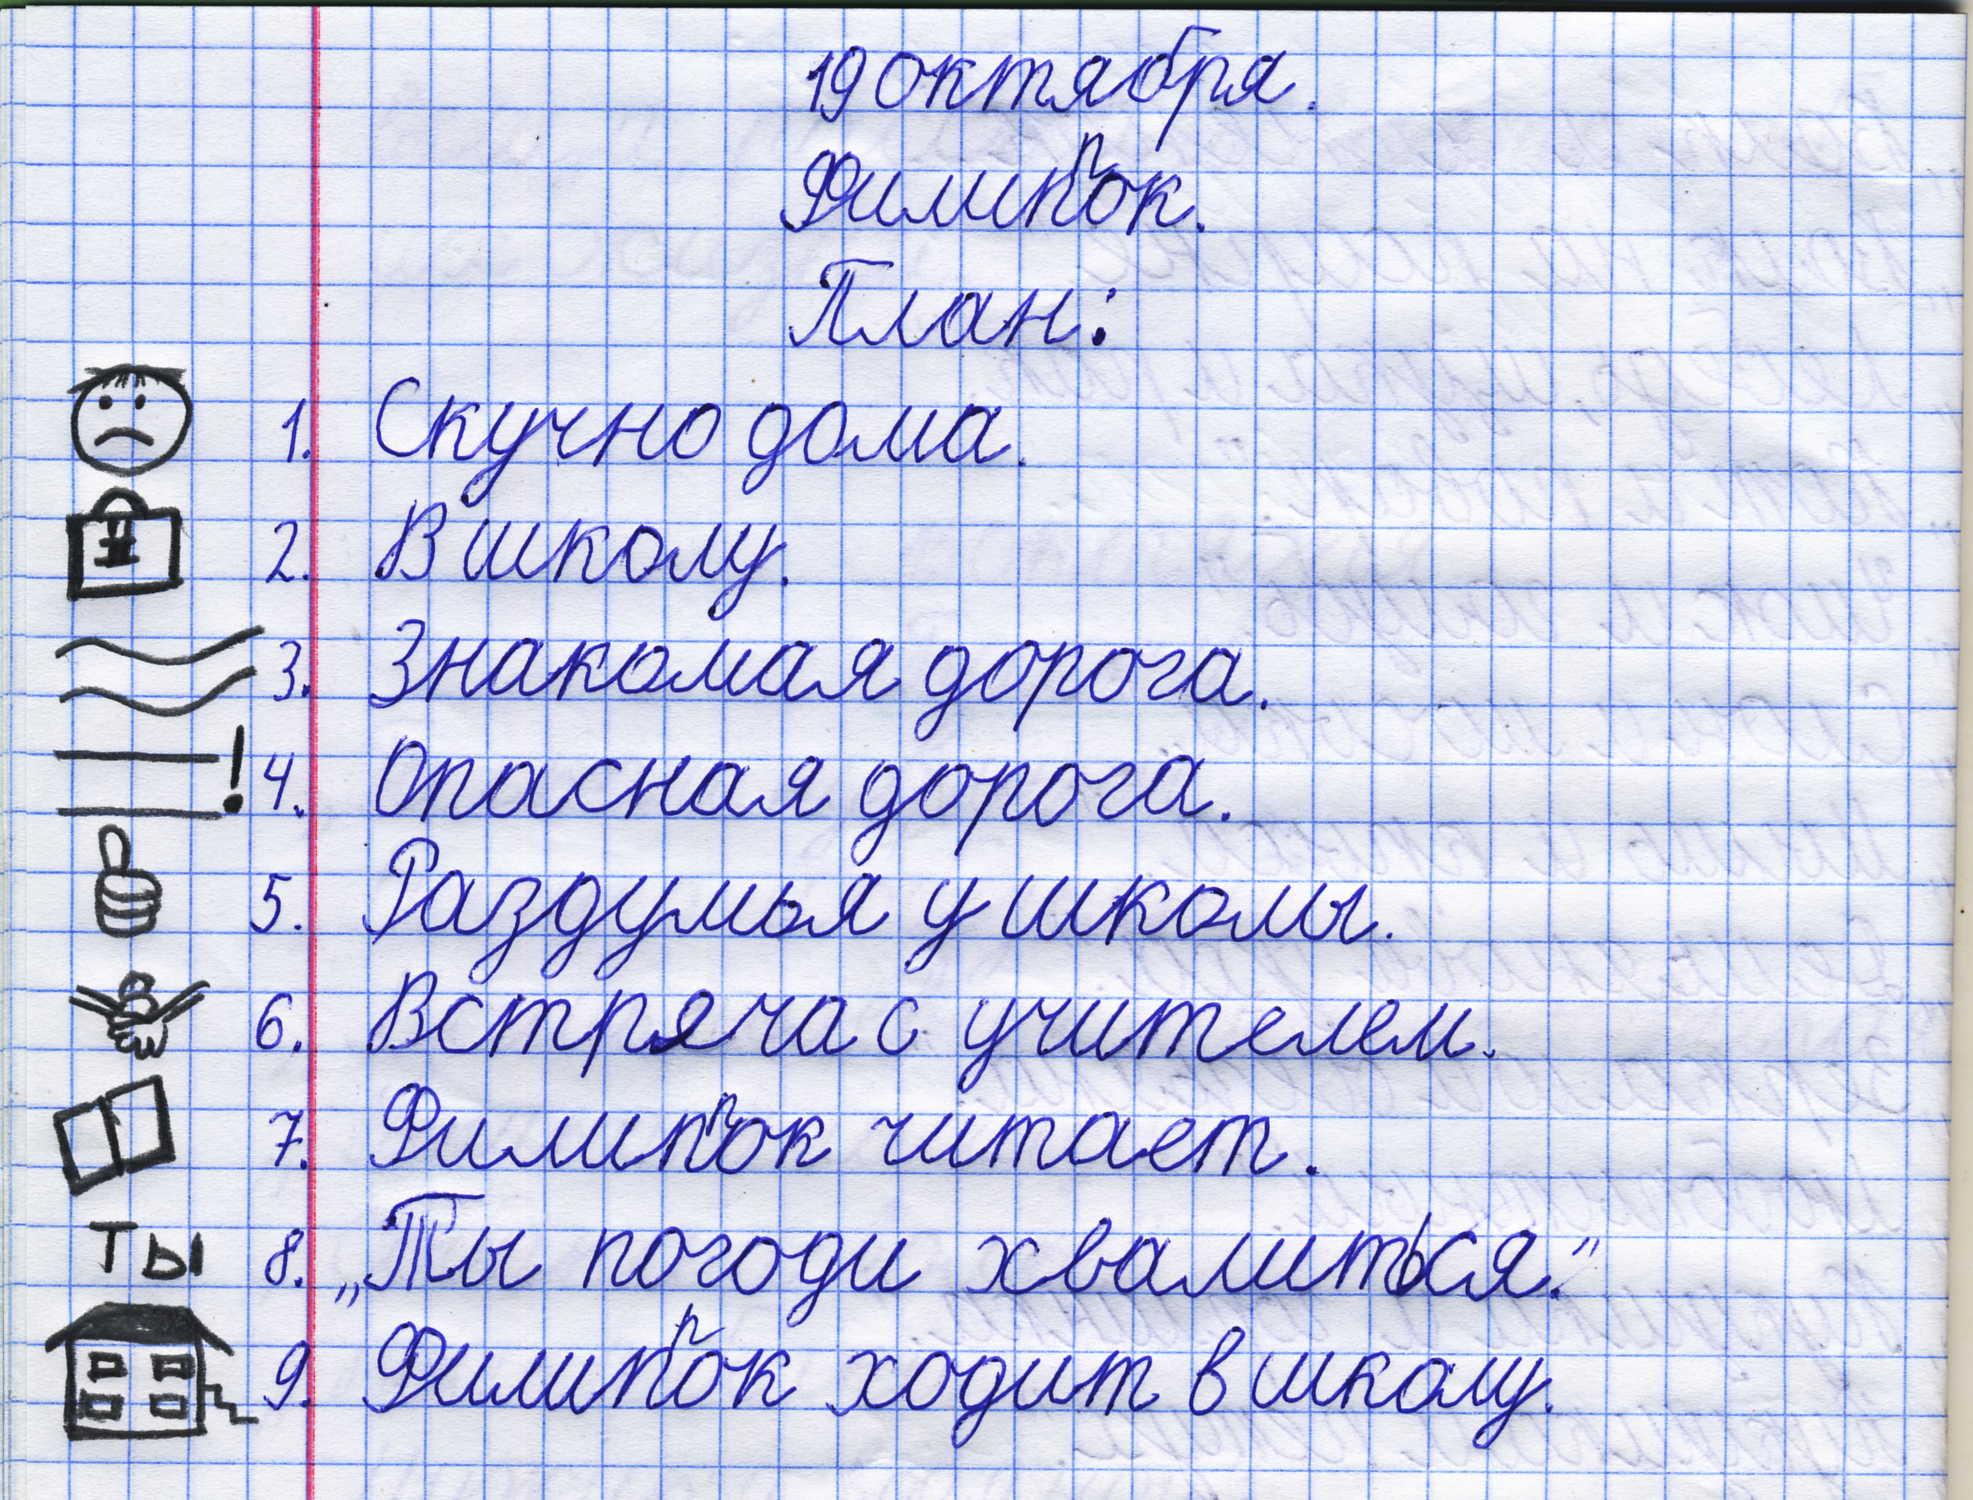 19 октября.
Филиппок.
План:
1. Скучно дома.
2. В школу.
3. Знакомая дорога.
4. Опасная дорога.
5. Раздумья у школы.
6. Встряча с учителем.
7. Филиппок читает.
ТЫ 8. „Ты погоди хвалиться."
9. Филиппок ходит в школу.